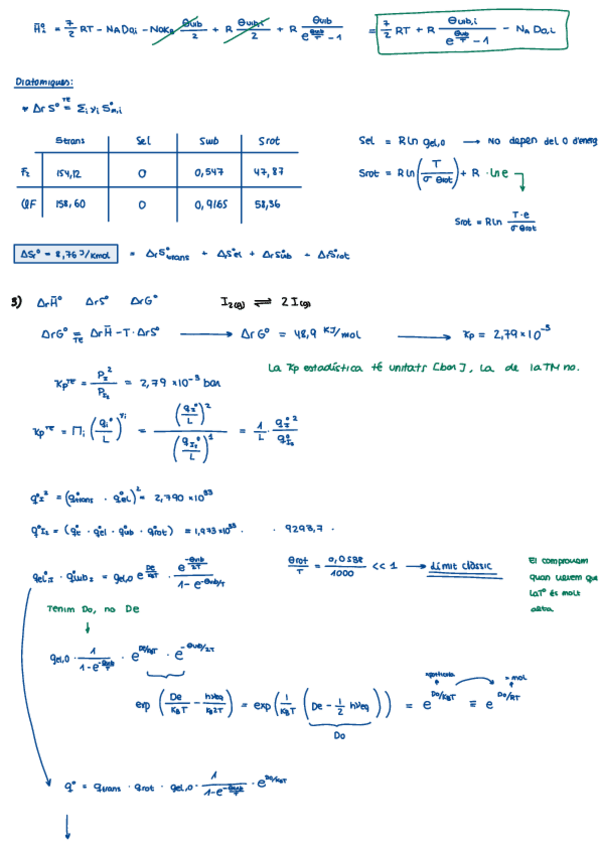 H̄°ᵢ = 7/2 RT - N_A D₀,ᵢ - N_A k_B Θvib/2 + R Θvib,i/2 + R Θvib/(e^(Θvib/T) - 1) = 7/2 RT + R Θvib,i/(e^(Θvib/T) - 1) - N_A D₀,i
Diatomiques:
* ΔrS° =^TE Σᵢ νᵢ S°m,i
Strans Sel Svib Srot
F₂ 154,12 0 0,547 47,87
ClF 158,60 0 0,9165 58,36
Sel = R ln gel,0 → No depen del 0 d'energ
Srot = R ln (T/(σ Θrot)) + R · ln e
Srot = R ln (T·e/(σ Θrot))
ΔSr° = 8,76 J/Kmol = ΔrS°trans + ΔrS°el + ΔrS°vib + ΔrS°rot
3) ΔrH̄° ΔrS° ΔrG° I₂(g) ⇌ 2I(g)
ΔrG° =_TE ΔrH̄ - T·ΔrS° → ΔrG° = 48,9 KJ/mol → Kp = 2,79×10⁻³
La Kp estadística té unitats [bar], la de la TM no.
Kp^TE = P_I²/P_I₂ = 2,79 ×10⁻³ bar
Kp^TE = Πᵢ (qᵢ°/L)^νᵢ = (q_I°/L)²/(q_I₂°/L)¹ = 1/L · q_I°²/q_I₂°
q°_I² = (q°trans · q°el)² = 2,790 ×10⁶³
q°I₂ = (q°t · q°el · q°vib · q°rot) = 1,973×10³³ · 9293,7 ·
q°el,I · q°vib,I = gel,0 e^(De/kBT) · e^(-Θvib/2T)/(1 - e^(-Θvib/T))
Θrot/T = 0,0538/1000 << 1 → Límit clàssic
El comprovam quan veiem que la T° és molt alta.
Tenim Do, no De
gel,0 · 1/(1-e^(-Θvib/T)) · e^(De/kBT) · e^(-Θvib/2T)
exp (De/kBT - hνeq/kB2T) = exp (1/kBT (De - 1/2 hνeq)) = e^(Do/kBT) ≡ e^(Do/RT)
Do
q° = qtrans · qrot · gel,0 · 1/(1-e^(-Θvib/T)) · e^(Do/kBT)